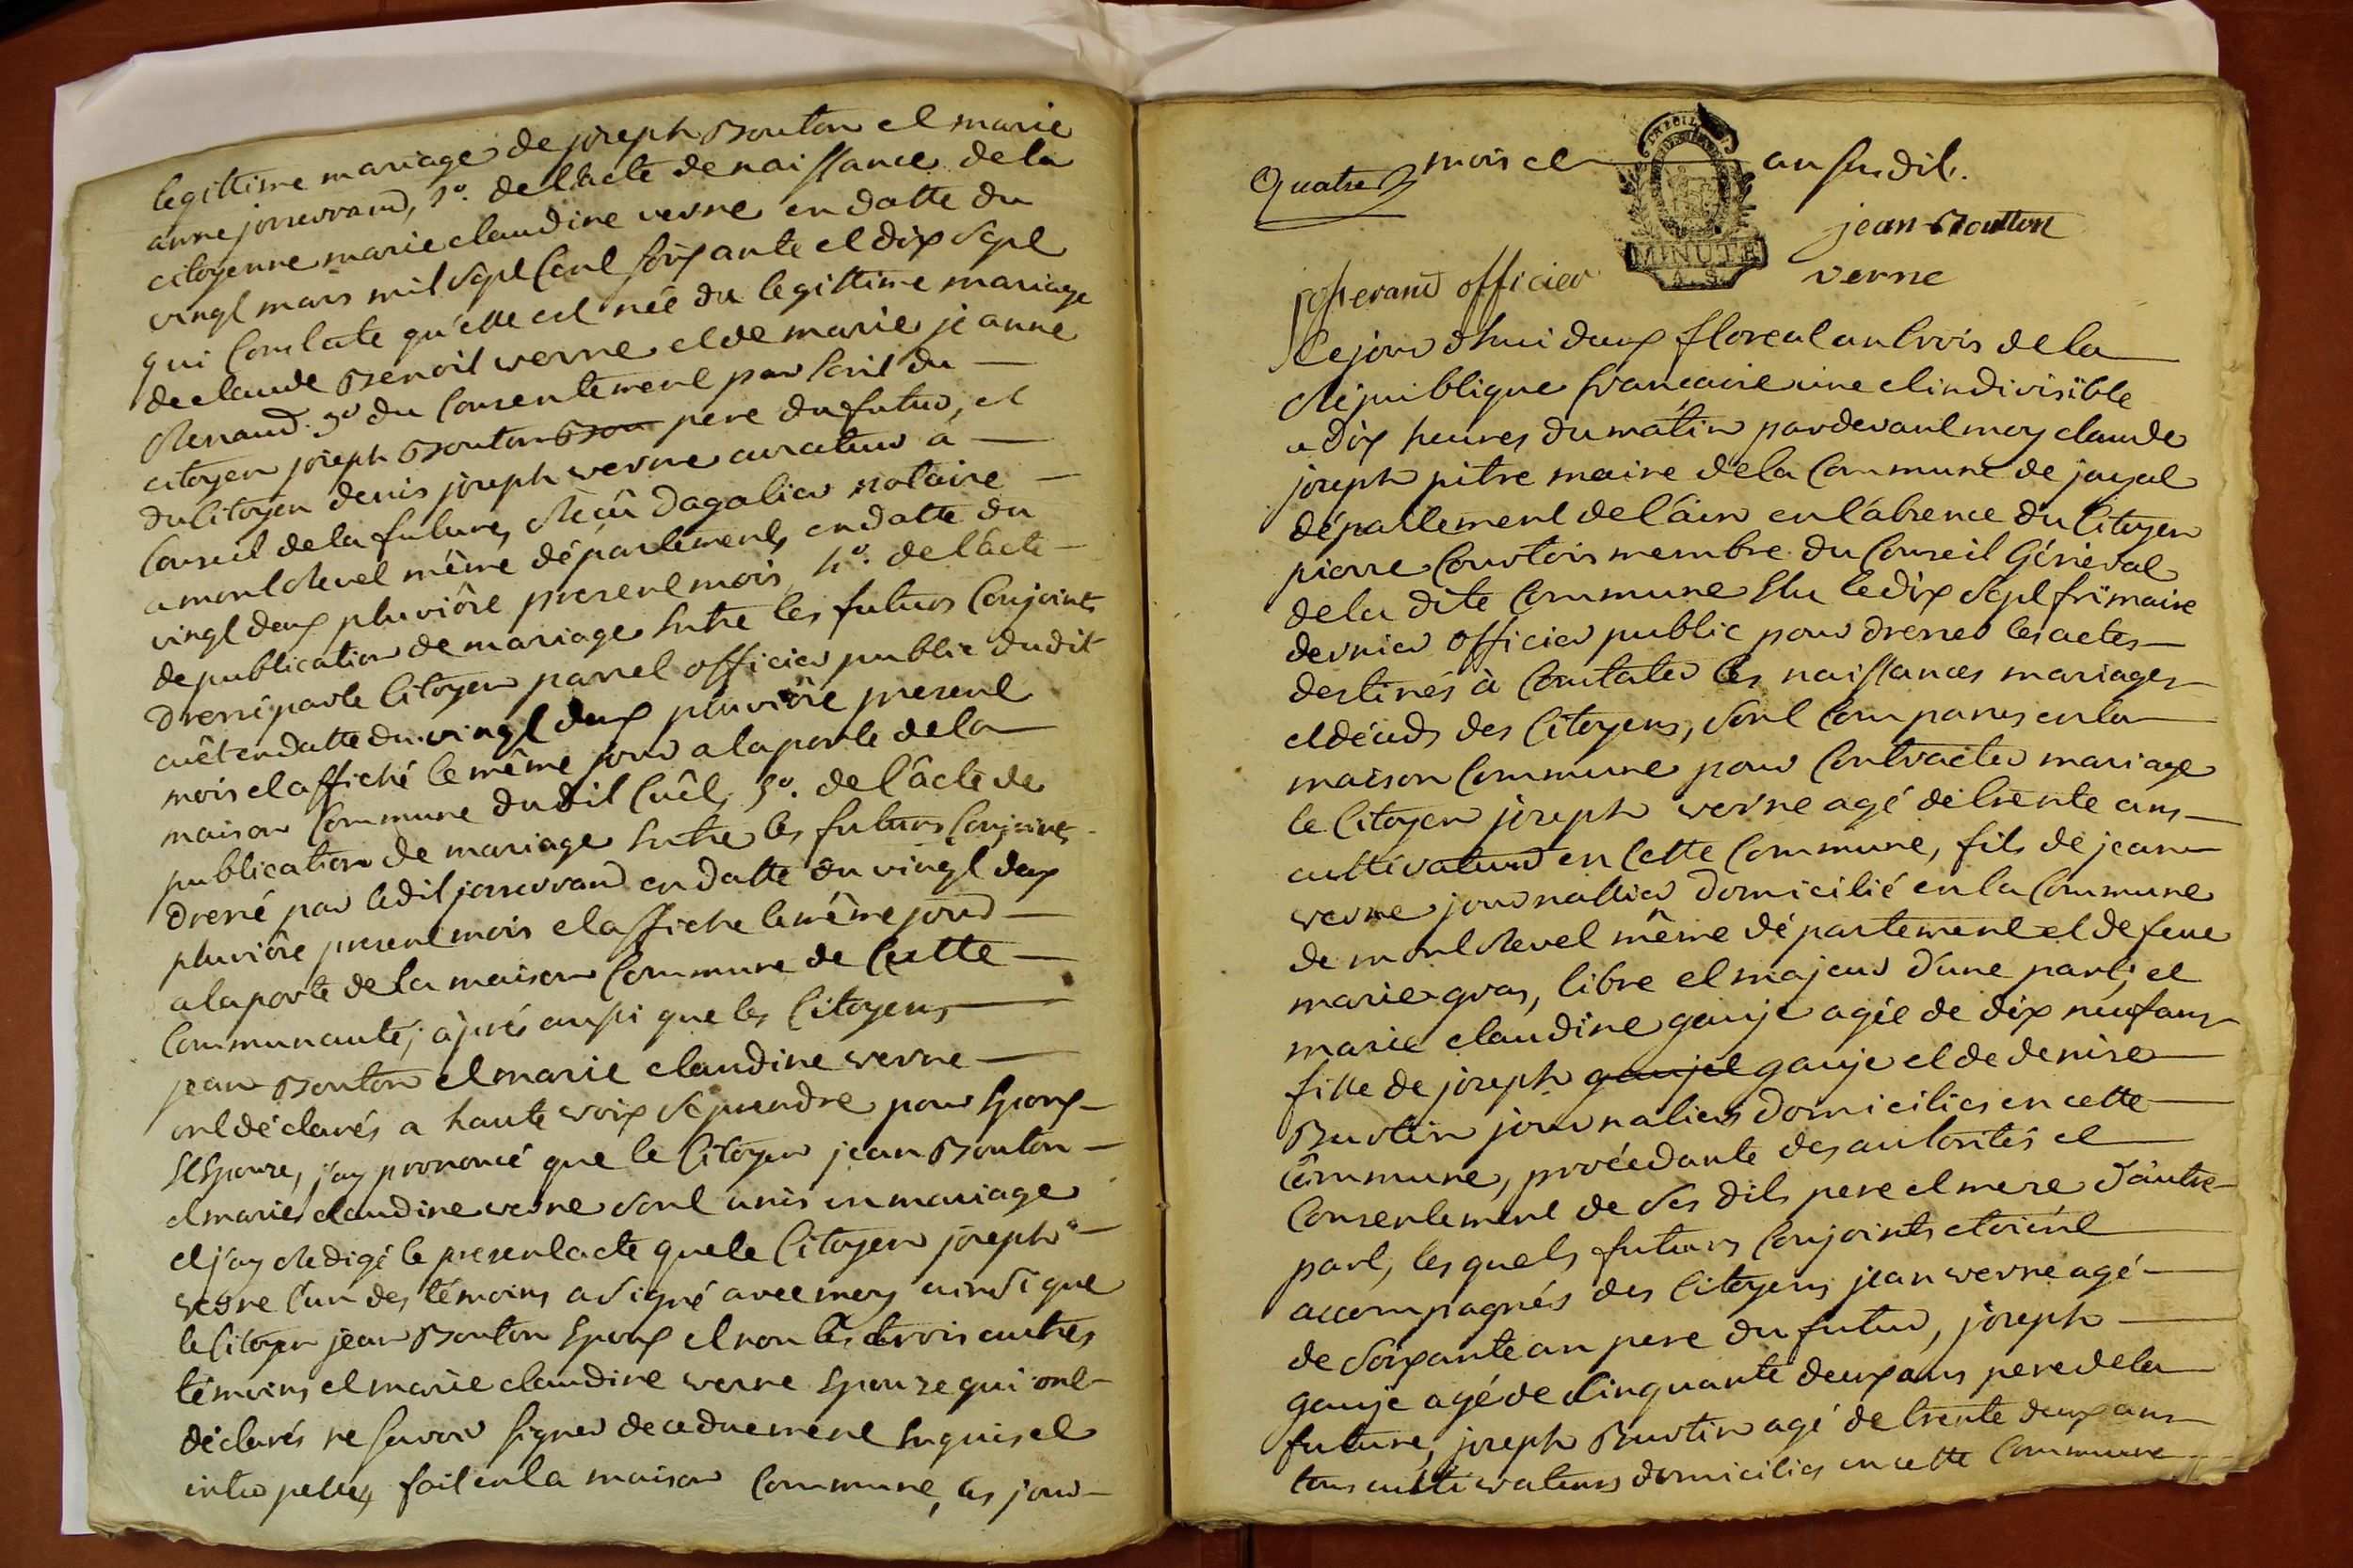 legittime mariage de joseph Bouton et marie
anne josserrand, 2o. de l'acte de naissance de la
citoyenne marie claudine verne en datte du
vingt mars mil sept Cent soixante et dix sept
qui Constate qu'elle est née du legittime mariage
de claude Benoit verne et de marie jeanne
Renaud. 3o du Consentement par écrit du
citoyen joseph Bouton Bou pere du futur, et
du Citoyen denis joseph verne curateur à
Conseil de la future, Reçû Dagalier notaire
a mont Revel même département, en datte du
vingt deux pluviôse present mois, 4o. de l'acte
de publication de mariage entre les futurs Conjoints
dressé par le Citoyen parrel officier public dudit
cuêt en datte du vingt deux pluviôse present
mois et affiché le même jour a la porte de la
maison Commune dudit Cuêt, 5o. de l'âcte de
publication de mariage entre les futurs Conjoints
dressé par ledit josserrand en datte du vingt deux
pluviôse present mois et affiche le même jour
a la porte de la maison Commune de Cette
Communauté; àprés aussi que les Citoyens
jean Bouton et marie claudine verne
ont déclarés a haute voix se prendre pour Epoux
et Epouse, j'ay prononcé que le Citoyen jean Bouton
et marie claudine verne sont unis en mariage
et j'ay Redigé le present acte que le Citoyen joseph
verne l'un des témoins a signé avec moy ainsi que
le Citoyen jean Bouton Epoux et non les trois autres
témoins et marie claudine verne Epouse qui ont
déclarés ne savoir signer de ce duement enquis et
interpellés, fait en la maison Commune, les jour
Quatre mois et an susdit.
MINUTE
jean Boutton
josserand officier verne
Cejourd'hui deux floreal an trois de la
République francaise une et indivisible
a dix heures du matin pardevant moy claude
joseph pitre maire de la Commune de jayat
département de l'ain en l'absence du Citoyen
pierre Courtois membre du Conseil Général
de la dite Commune Elu le dix sept frimaire
dernier officier public pour dresser les actes
destinés à Constater les naissances mariages
et décéds des Citoyens, sont Comparus en la
maison Commune pour Contracter mariage
le Citoyen joseph verne agé de trente ans
cultivateur en Cette Commune, fils de jean
verne journallier domicilié en la Commune
de mont Revel même département et de feue
marie gras, libre et majeur d'une part; et
marie claudine gauje agée de dix neuf ans
fille de joseph gaujet gauje et de denise
Burtin journaliers domiciliés en cette
Commune, procédante des autorités et
Consentement de ses dits pere et mere d'autre
part, les quels futurs Conjoints etoient
accompagnés des Citoyens jean verne agé
de soixante an pere du futur, joseph
gauje agé de Cinquante deux ans pere de la
future, joseph Burtin agé de trente deux ans
tous cultivateurs domiciliés en cette Commune